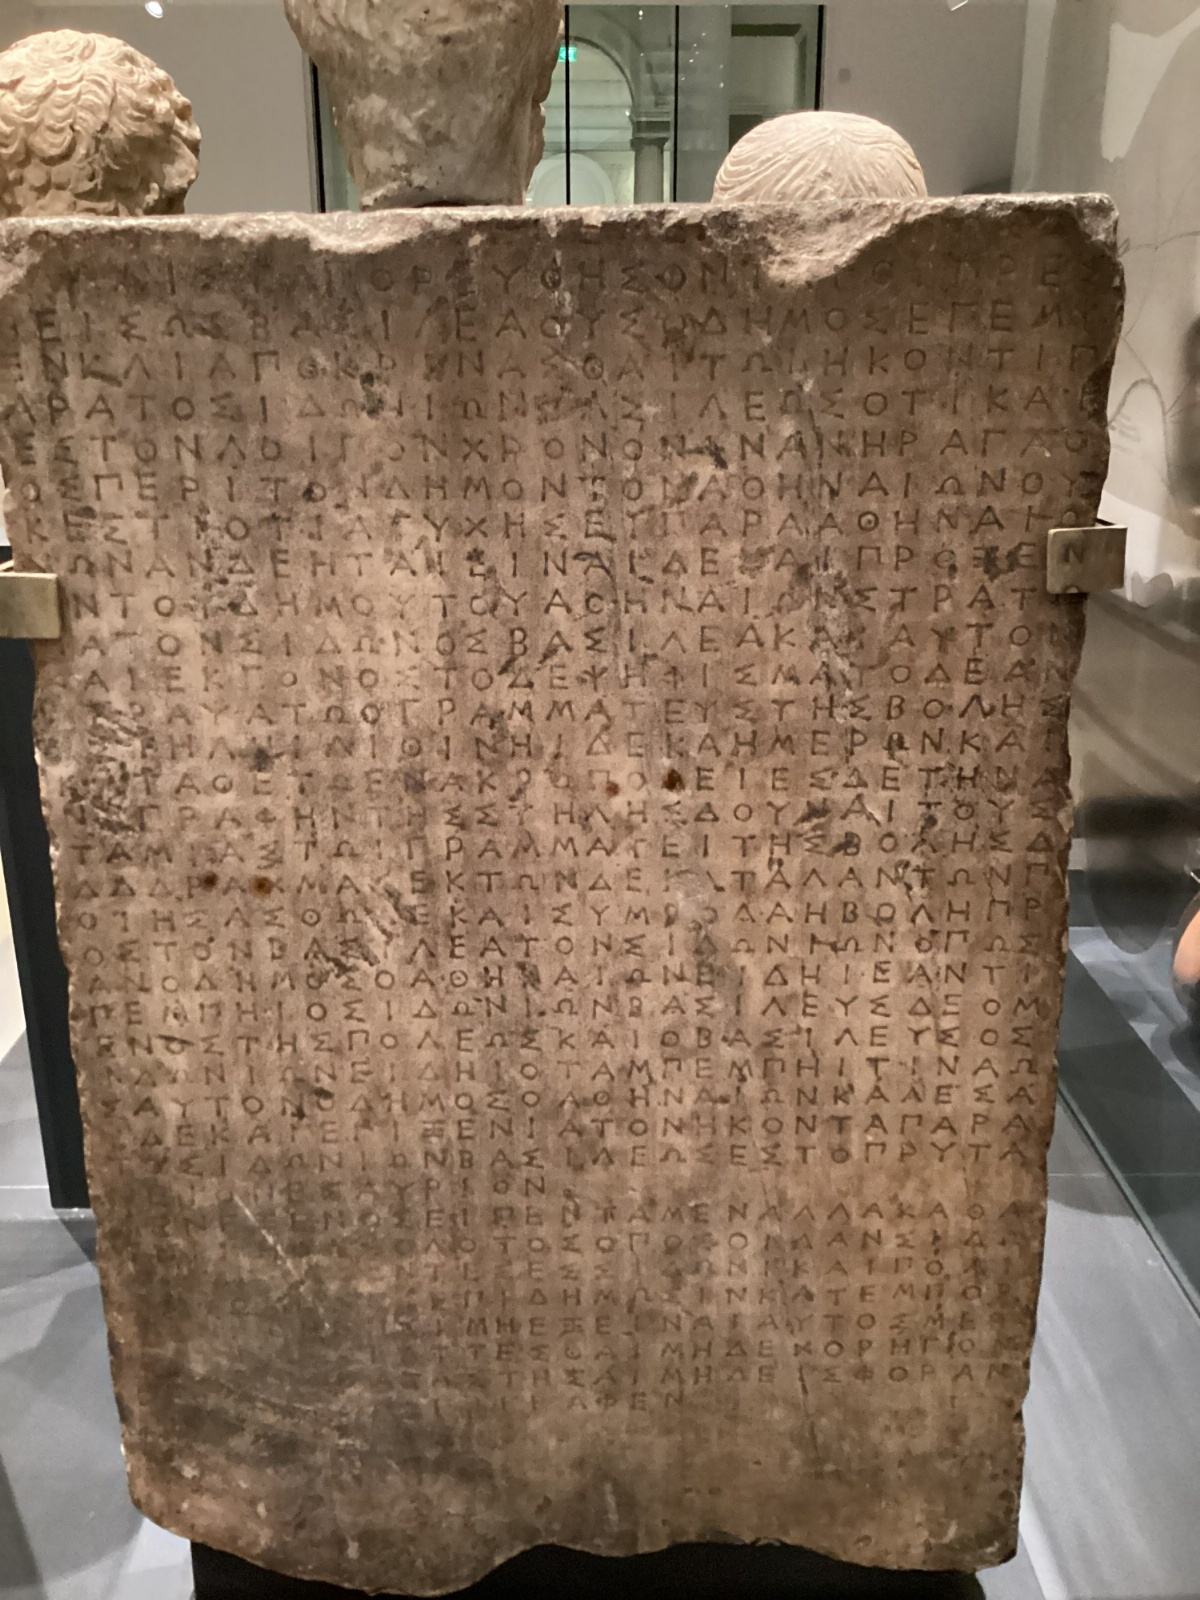 ΠΟΡΕΥΘΗΣΟΝΤΑΙΟΙΠΡΕΣ
ΒΕΙΣΩΣΒΑΣΙΛΕΑΟΥΣΟΔΗΜΟΣΕΠΕΜΨ
ΕΝΚΑΙΑΠΟΚΡΙΝΑΣΘΑΙΤΩΙΗΚΟΝΤΙΠ
ΑΡΑΤΟΣΙΔΩΝΙΩΝΒΑΣΙΛΕΩΣΟΤΙΚΑΙ
ΕΣΤΟΝΛΟΙΠΟΝΧΡΟΝΟΝΩΝΑΝΗΡΑΓΑΘ
ΟΣΠΕΡΙΤΟΝΔΗΜΟΝΤΟΝΑΘΗΝΑΙΩΝΟΥ
ΚΕΣΤΙΟΤΙΑΤΥΧΗΣΕΙΠΑΡΑΑΘΗΝΑΙΩ
ΝΩΝΑΝΔΕΗΤΑΙΕΙΝΑΙΔΕΚΑΙΠΡΟΞΕΝ
ΟΝΤΟΥΔΗΜΟΥΤΟΥΑΘΗΝΑΙΩΝΣΤΡΑΤΩ
ΝΑΤΟΝΣΙΔΩΝΟΣΒΑΣΙΛΕΑΚΑΙΑΥΤΟΝ
ΚΑΙΕΚΓΟΝΟΣΤΟΔΕΨΗΦΙΣΜΑΤΟΔΕΑΝ
ΑΓΡΑΨΑΤΩΟΓΡΑΜΜΑΤΕΥΣΤΗΣΒΟΛΗΣ
ΕΣΤΗΛΗΙΛΙΘΙΝΗΙΔΕΚΑΗΜΕΡΩΝΚΑΙ
ΚΑΤΑΘΕΤΩΕΝΑΚΡΟΠΟΛΕΙΕΣΔΕΤΗΝΑ
ΝΑΓΡΑΦΗΝΤΗΣΣΤΗΛΗΣΔΟΥΝΑΙΤΟΥΣ
ΤΑΜΙΑΣΤΩΙΓΡΑΜΜΑΤΕΙΤΗΣΒΟΛΗΣΔ
ΔΔΔΡΑΧΜΑΣΕΚΤΩΝΔΕΚΑΤΑΛΑΝΤΩΝΠ
ΟΙΗΣΑΣΘΩΔΕΚΑΙΣΥΜΒΟΛΑΗΒΟΛΗΠΡ
ΟΣΤΟΝΒΑΣΙΛΕΑΤΟΝΣΙΔΩΝΙΩΝΟΠΩΣ
ΑΝΟΔΗΜΟΣΟΑΘΗΝΑΙΩΝΕΙΔΗΙΕΑΝΤΙ
ΠΕΜΠΗΙΟΣΙΔΩΝΙΩΝΒΑΣΙΛΕΥΣΔΕΟΜ
ΕΝΟΣΤΗΣΠΟΛΕΩΣΚΑΙΟΒΑΣΙΛΕΥΣΟΣ
ΙΔΩΝΙΩΝΕΙΔΗΙΟΤΑΜΠΕΜΠΗΙΤΙΝΑΩ
ΣΑΥΤΟΝΟΔΗΜΟΣΟΑΘΗΝΑΙΩΝΚΑΛΕΣΑ
ΙΔΕΚΑΙΕΠΙΞΕΝΙΑΤΟΝΗΚΟΝΤΑΠΑΡΑ
ΤΟΥΣΙΔΩΝΙΩΝΒΑΣΙΛΕΩΣΕΣΤΟΠΡΥΤΑ
ΝΕΙΟΝΕΣΑΥΡΙΟΝ
ΜΕΝΕΞΕΝΟΣΕΙΠΕΝΤΑΜΕΝΑΛΛΑΚΑΘΑ
ΟΔΟΤΟΣΟΠΟΣΟΙΔΑΝΣΙΔΩ
ΝΤΕΣΕΣΣΙΔΩΝΙΚΑΙΠΟΛΙ
ΕΠΙΔΗΜΩΣΙΝΚΑΤΕΜΠΟΡ
ΙΜΗΕΞΕΙΝΑΙΑΥΤΟΣΜΕΤ
ΤΤΕΣΘΑΙΜΗΔΕΧΟΡΗΓΟΝ
ΑΣΤΗΣΑΙΜΗΔΕΙΣΦΟΡΑΝ
ΙΓΡΑΦΕΝ